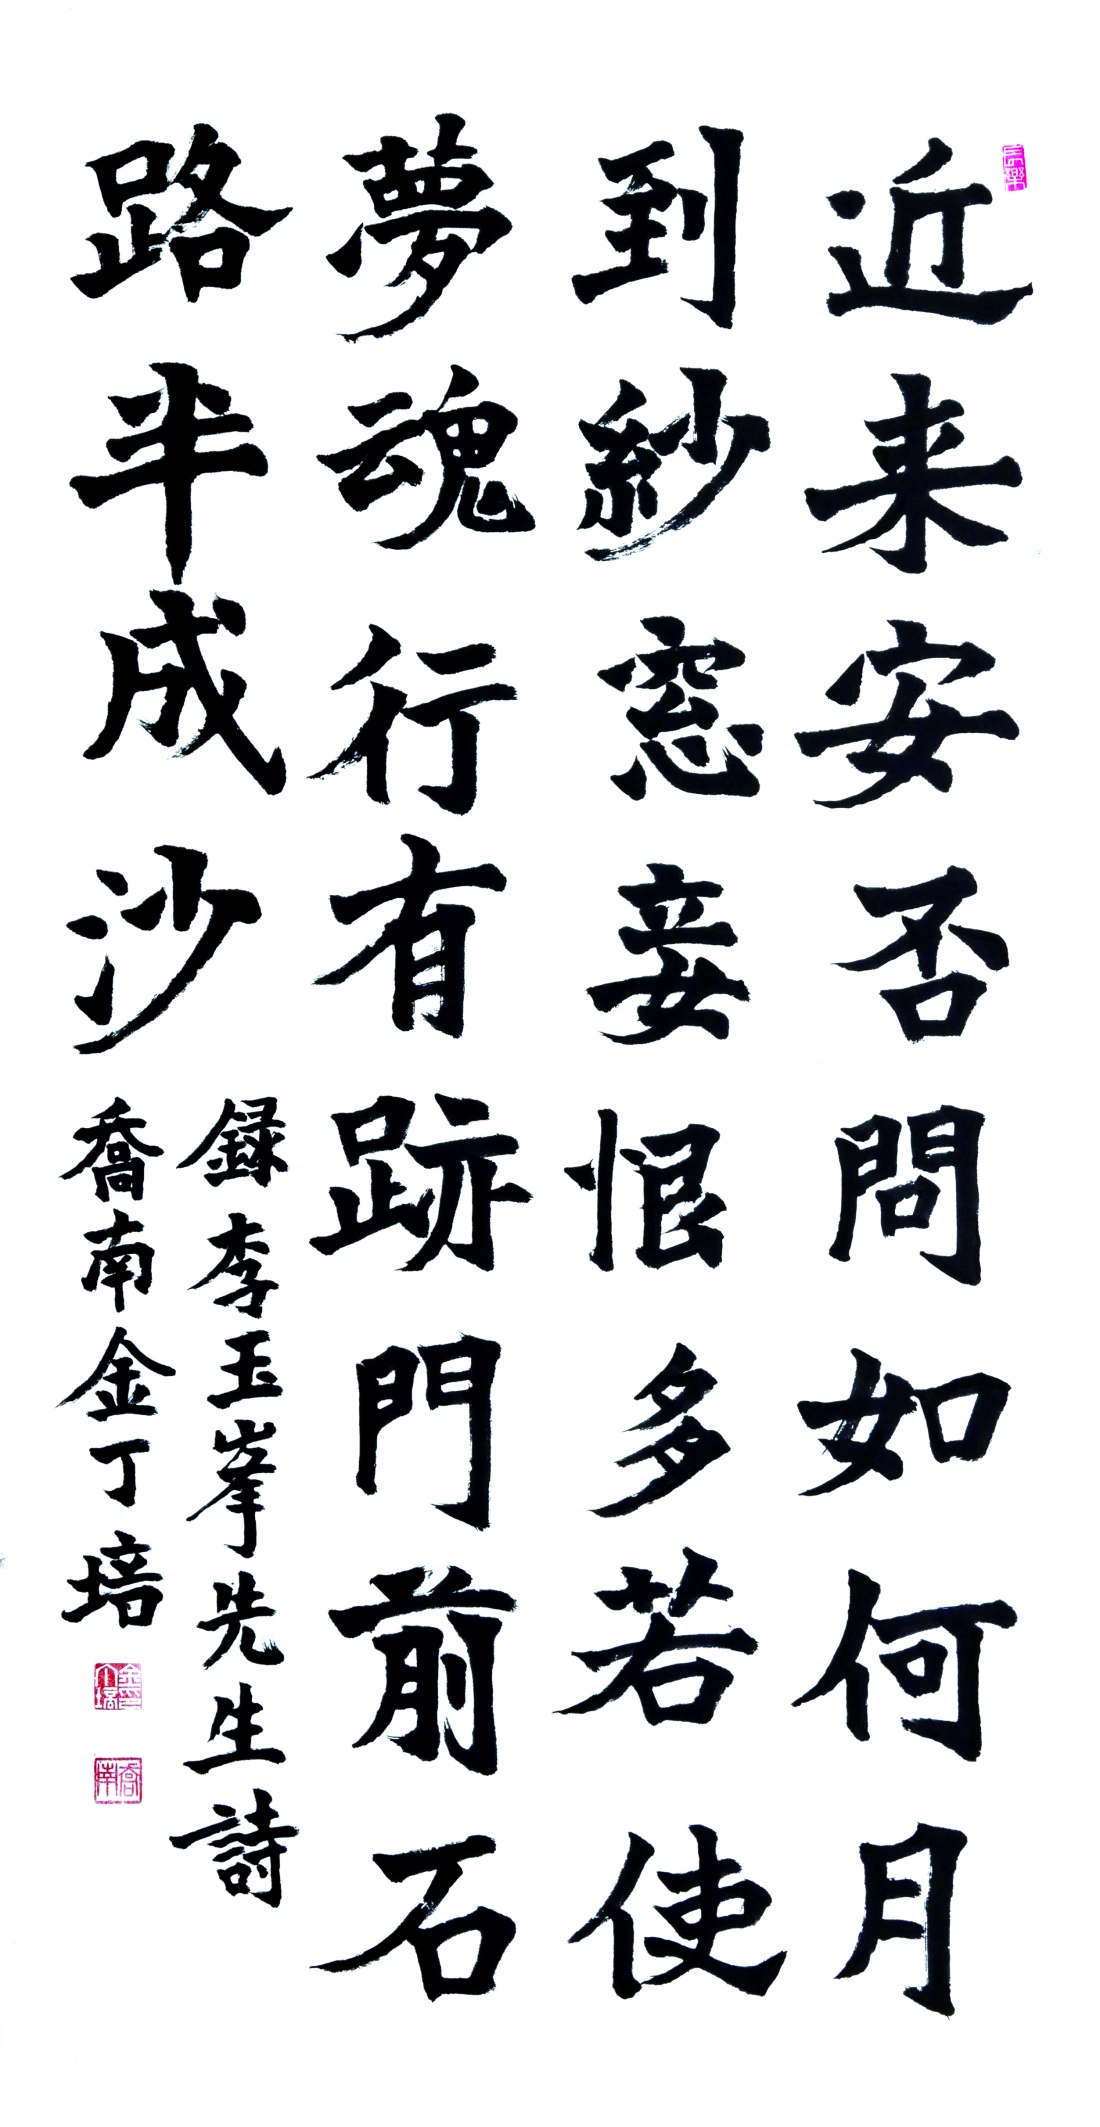 近来安否問如何月
到紗窓妾恨多若使
夢魂行有跡門前石
路半成沙
録李玉峯先生詩
喬南金丁培
喬南